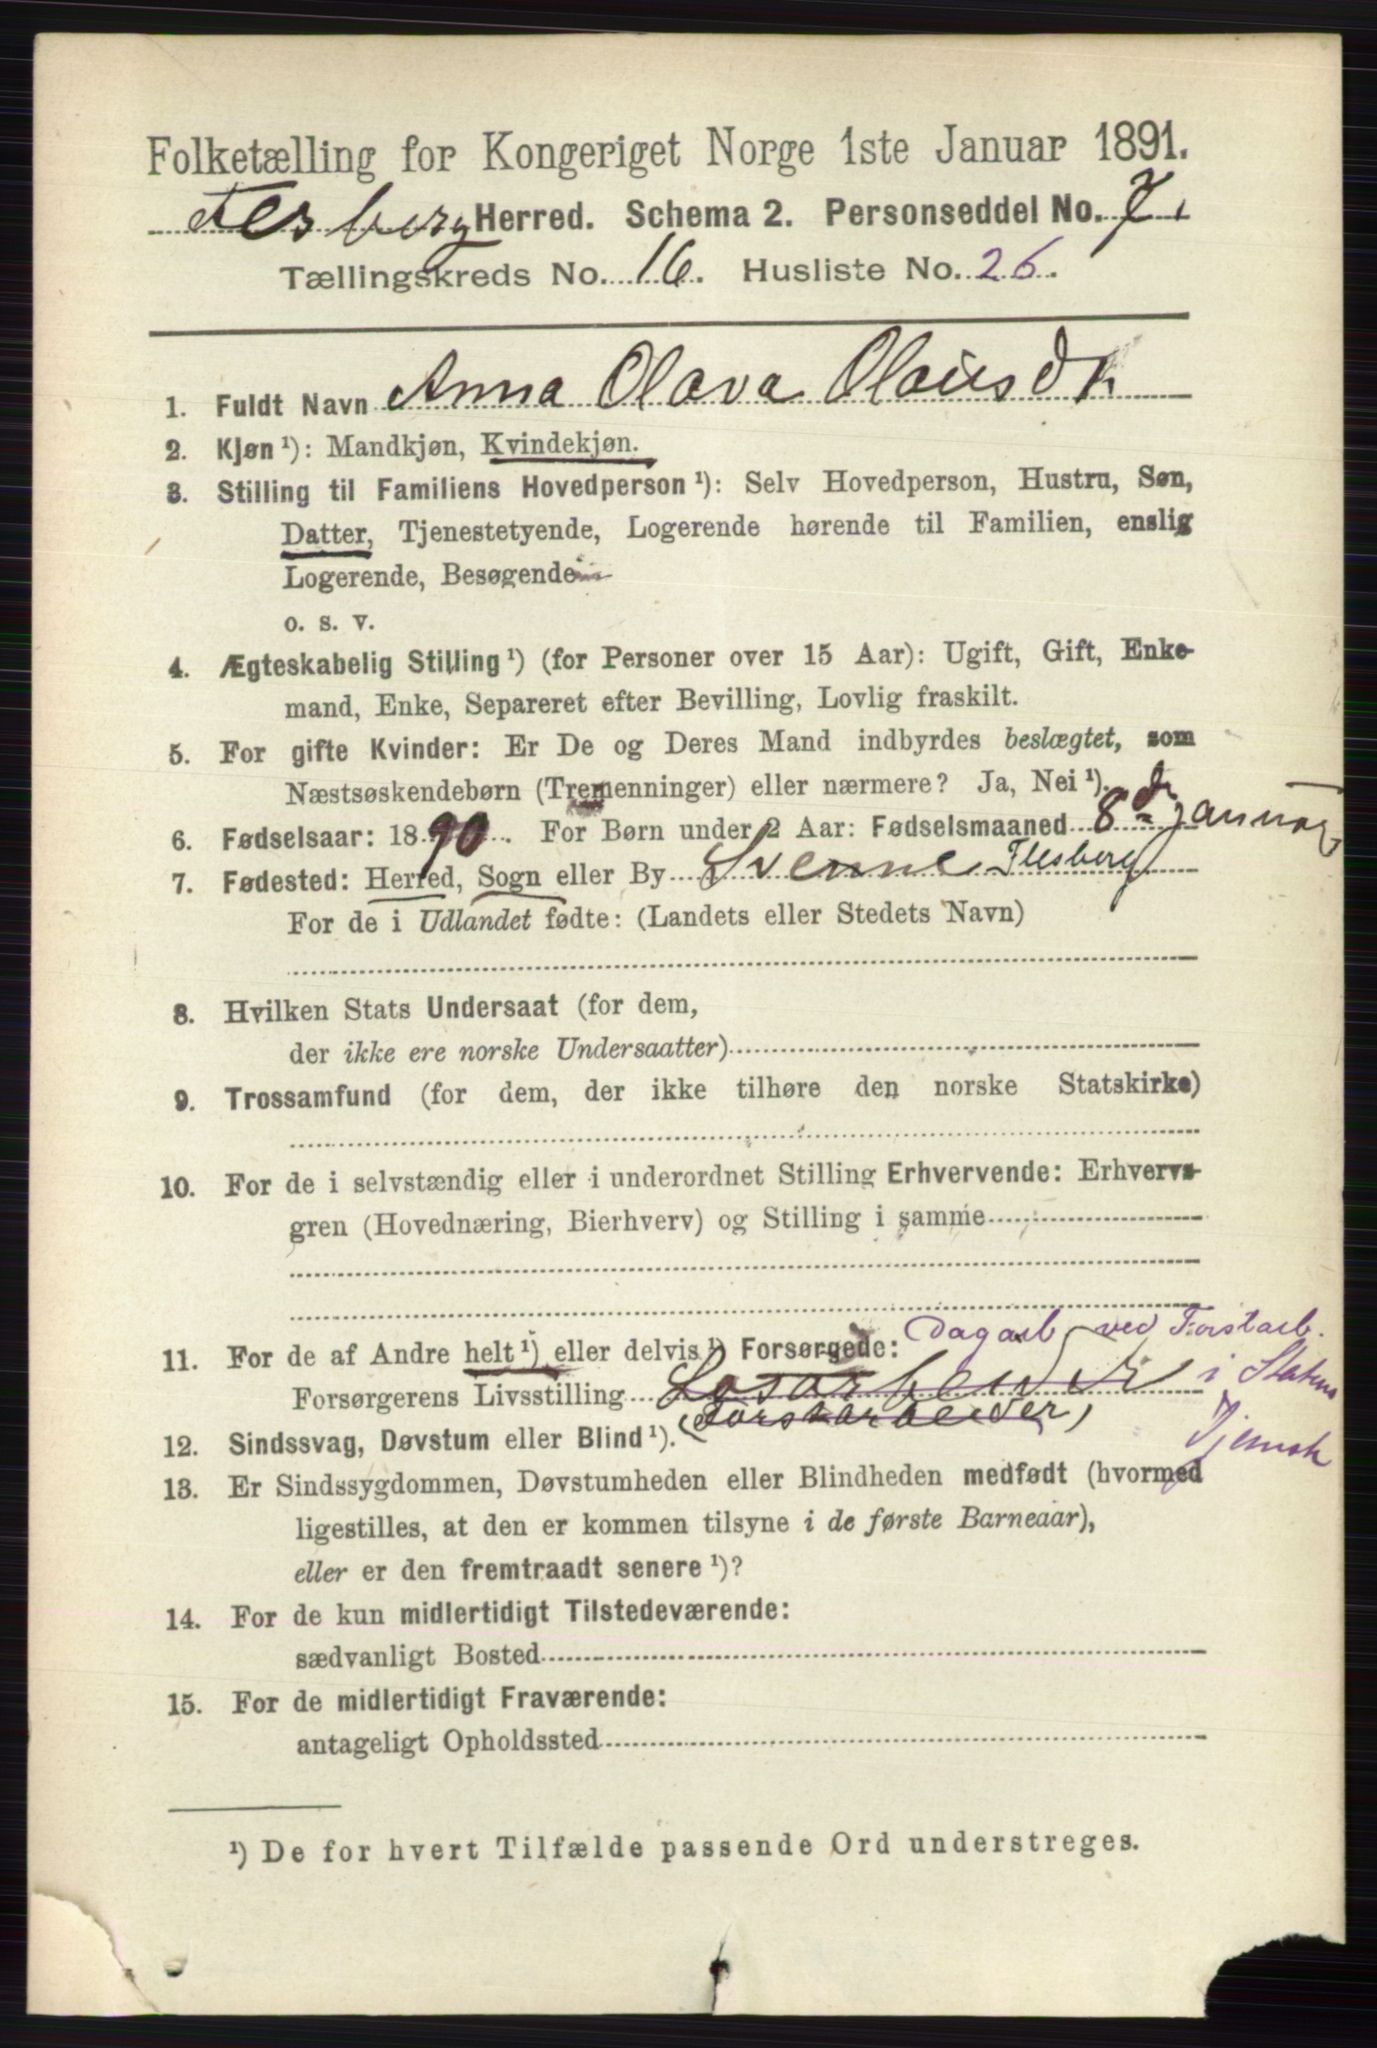 Folketælling for Kongeriget Norge 1ste Januar 1891.
Flesberg Herred. Schema 2. Personseddel No. 7.
Tællingskreds No. 16. Husliste No. 26.
1. Fuldt Navn Anna Olava Olausdtr
2. Kjøn ¹): Mandkjøn, Kvindekjøn.
3. Stilling til Familiens Hovedperson ¹): Selv Hovedperson, Hustru, Søn,
Datter, Tjenestetyende, Logerende hørende til Familien, enslig
Logerende, Besøgende
o. s. v.
4. Ægteskabelig Stilling ¹) (for Personer over 15 Aar): Ugift, Gift, Enke-
mand, Enke, Separeret efter Bevilling, Lovlig fraskilt.
5. For gifte Kvinder: Er De og Deres Mand indbyrdes beslægtet, som
Næstsøskendebørn (Tremenninger) eller nærmere? Ja, Nei ¹).
6. Fødselsaar: 1890. For Børn under 2 Aar: Fødselsmaaned 8de januar
7. Fødested: Herred, Sogn eller By Svenne Flesberg
For de i Udlandet fødte: (Landets eller Stedets Navn)
8. Hvilken Stats Undersaat (for dem,
der ikke ere norske Undersaatter)
9. Trossamfund (for dem, der ikke tilhøre den norske Statskirke)
10. For de i selvstændig eller i underordnet Stilling Erhvervende: Erhvervs-
gren (Hovednæring, Bierhverv) og Stilling i samme
Dagarb. ved Forstarb.
11. For de af Andre helt ¹) eller delvis ¹) Forsørgede:
Forsørgerens Livsstilling Løsarbeider i Statens
(Forstarbeider) Tjeneste
12. Sindssvag, Døvstum eller Blind ¹).
13. Er Sindssygdommen, Døvstumheden eller Blindheden medfødt (hvormed
ligestilles, at den er kommen tilsyne i de første Barneaar),
eller er den fremtraadt senere ¹)?
14. For de kun midlertidigt Tilstedeværende:
sædvanligt Bosted
15. For de midlertidigt Fraværende:
antageligt Opholdssted
¹) De for hvert Tilfælde passende Ord understreges.